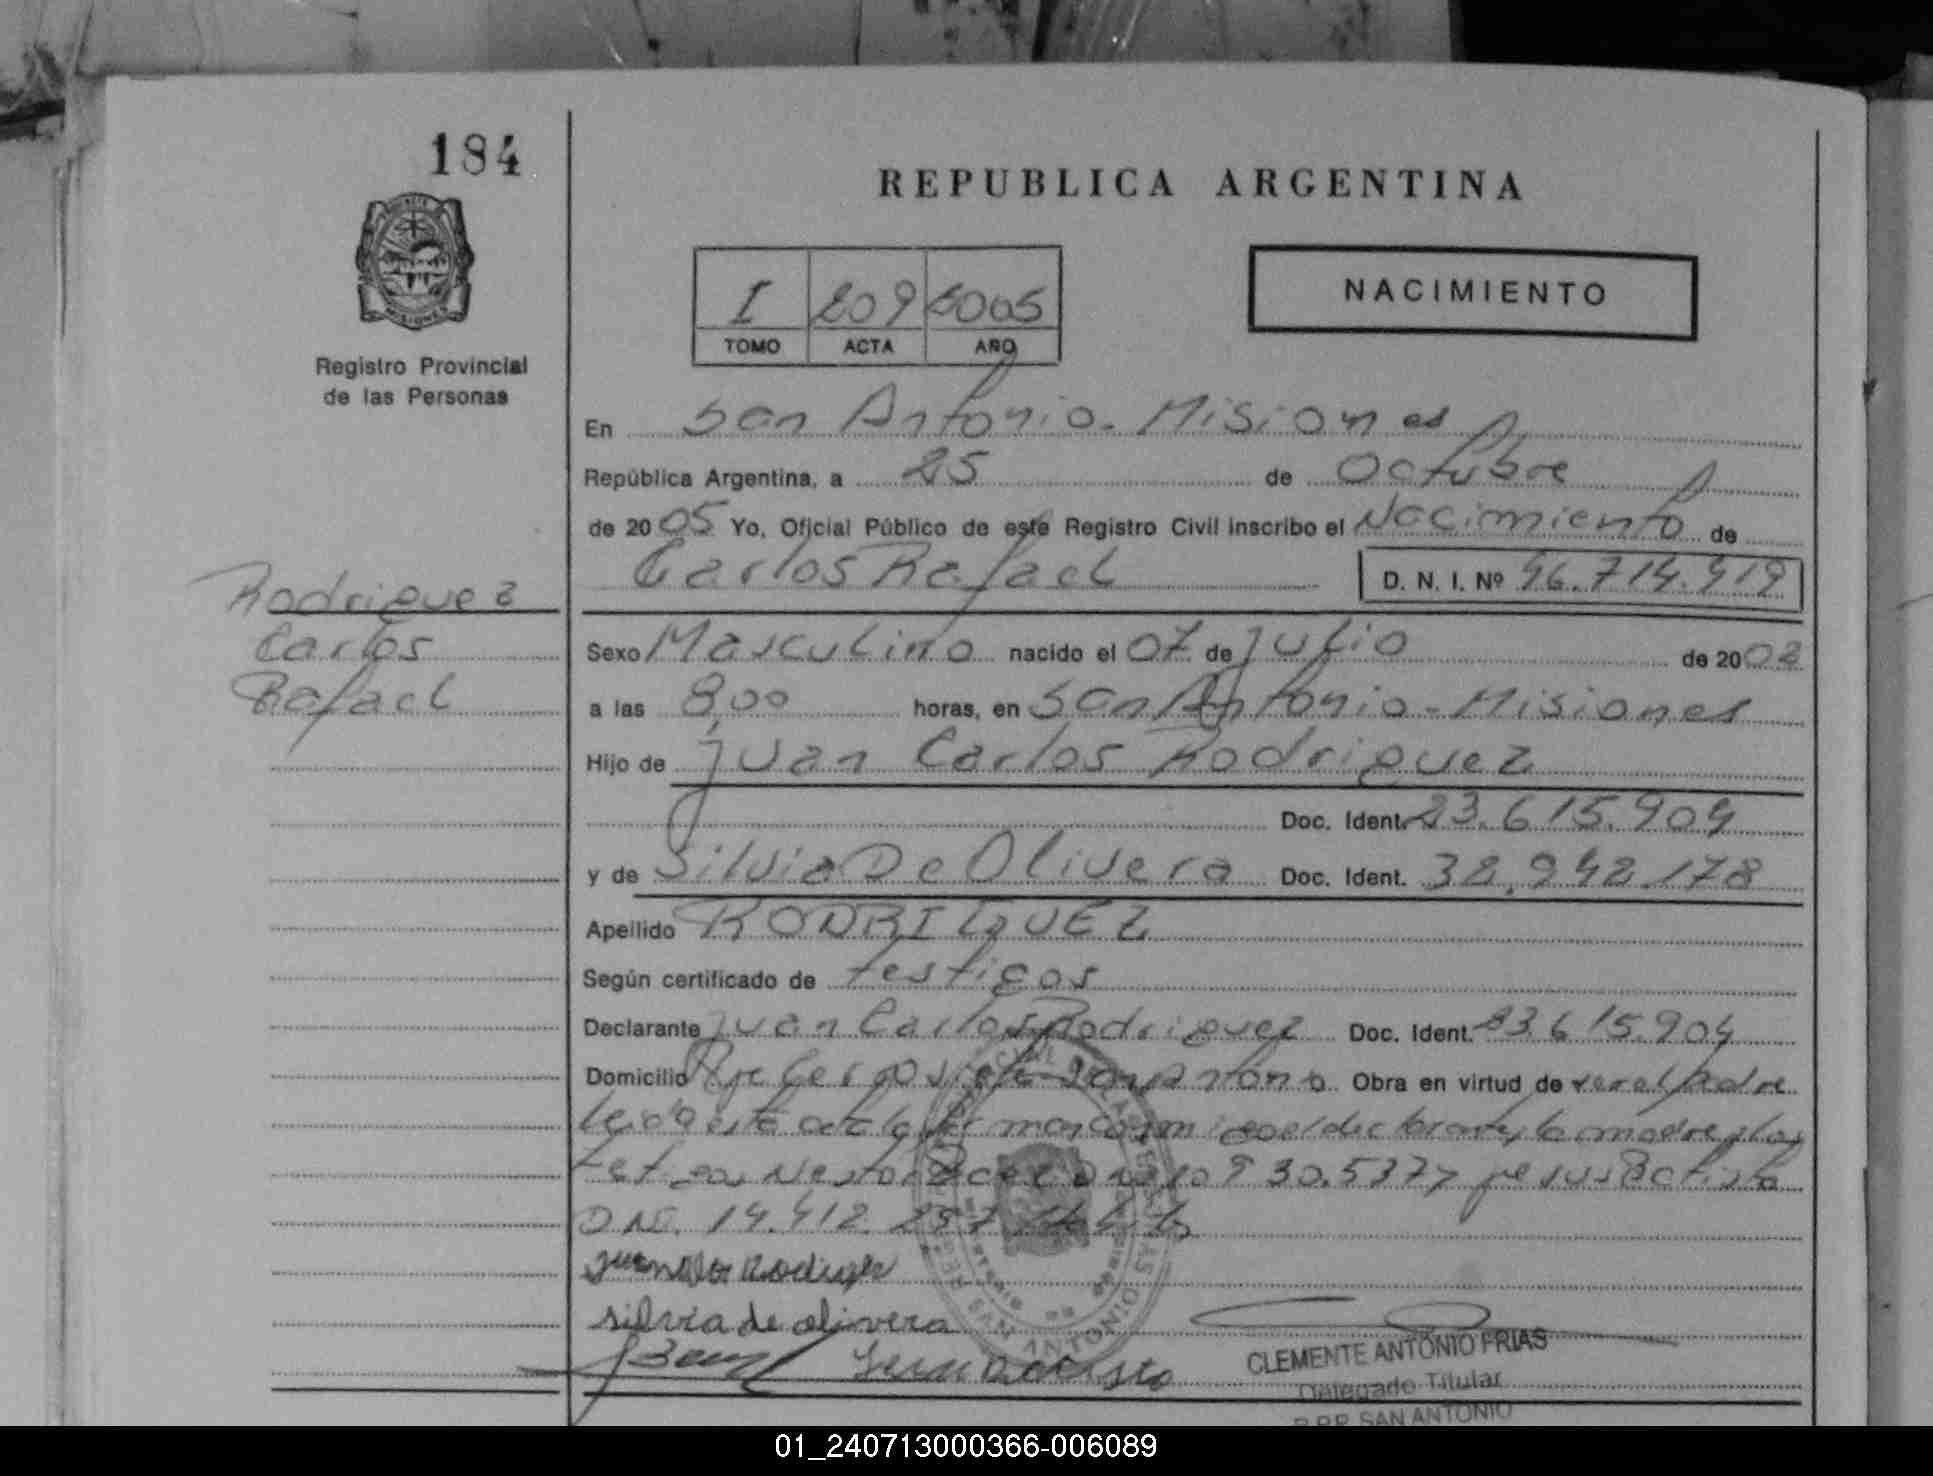 184
REPUBLICA ARGENTINA
I 209 2005
TOMO ACTA AÑO
NACIMIENTO
MISIONES
Registro Provincial
de las Personas
En San Antonio - Misiones
República Argentina, a 25 de Octubre
de 2005 Yo, Oficial Público de este Registro Civil inscribo el Nacimiento de
Carlos Rafael D. N. I. Nº 46.714.419
Rodriguez
Carlos
Rafael
Sexo Masculino nacido el 07 de Julio de 2002
a las 8,00 horas, en San Antonio - Misiones
Hijo de Juan Carlos Rodriguez
Doc. Ident. 23.615.904
y de Silvia De Olivera Doc. Ident. 32.942.178
Apellido RODRIGUEZ
Según certificado de testigos
Declarante Juan Carlos Rodriguez Doc. Ident. 23.615.904
Domicilio San Antonio Obra en virtud de ser el Padre
Leida esta acta la firman conmigo el declarante, la madre y los
testigos Nestor 30.537 y Jesus Batista
DNI. 14.412.257
Rodrigue
silvia de olivera
CLEMENTE ANTONIO FRIAS
Delegado Titular
R.P.P. SAN ANTONIO
01_240713000366-006089